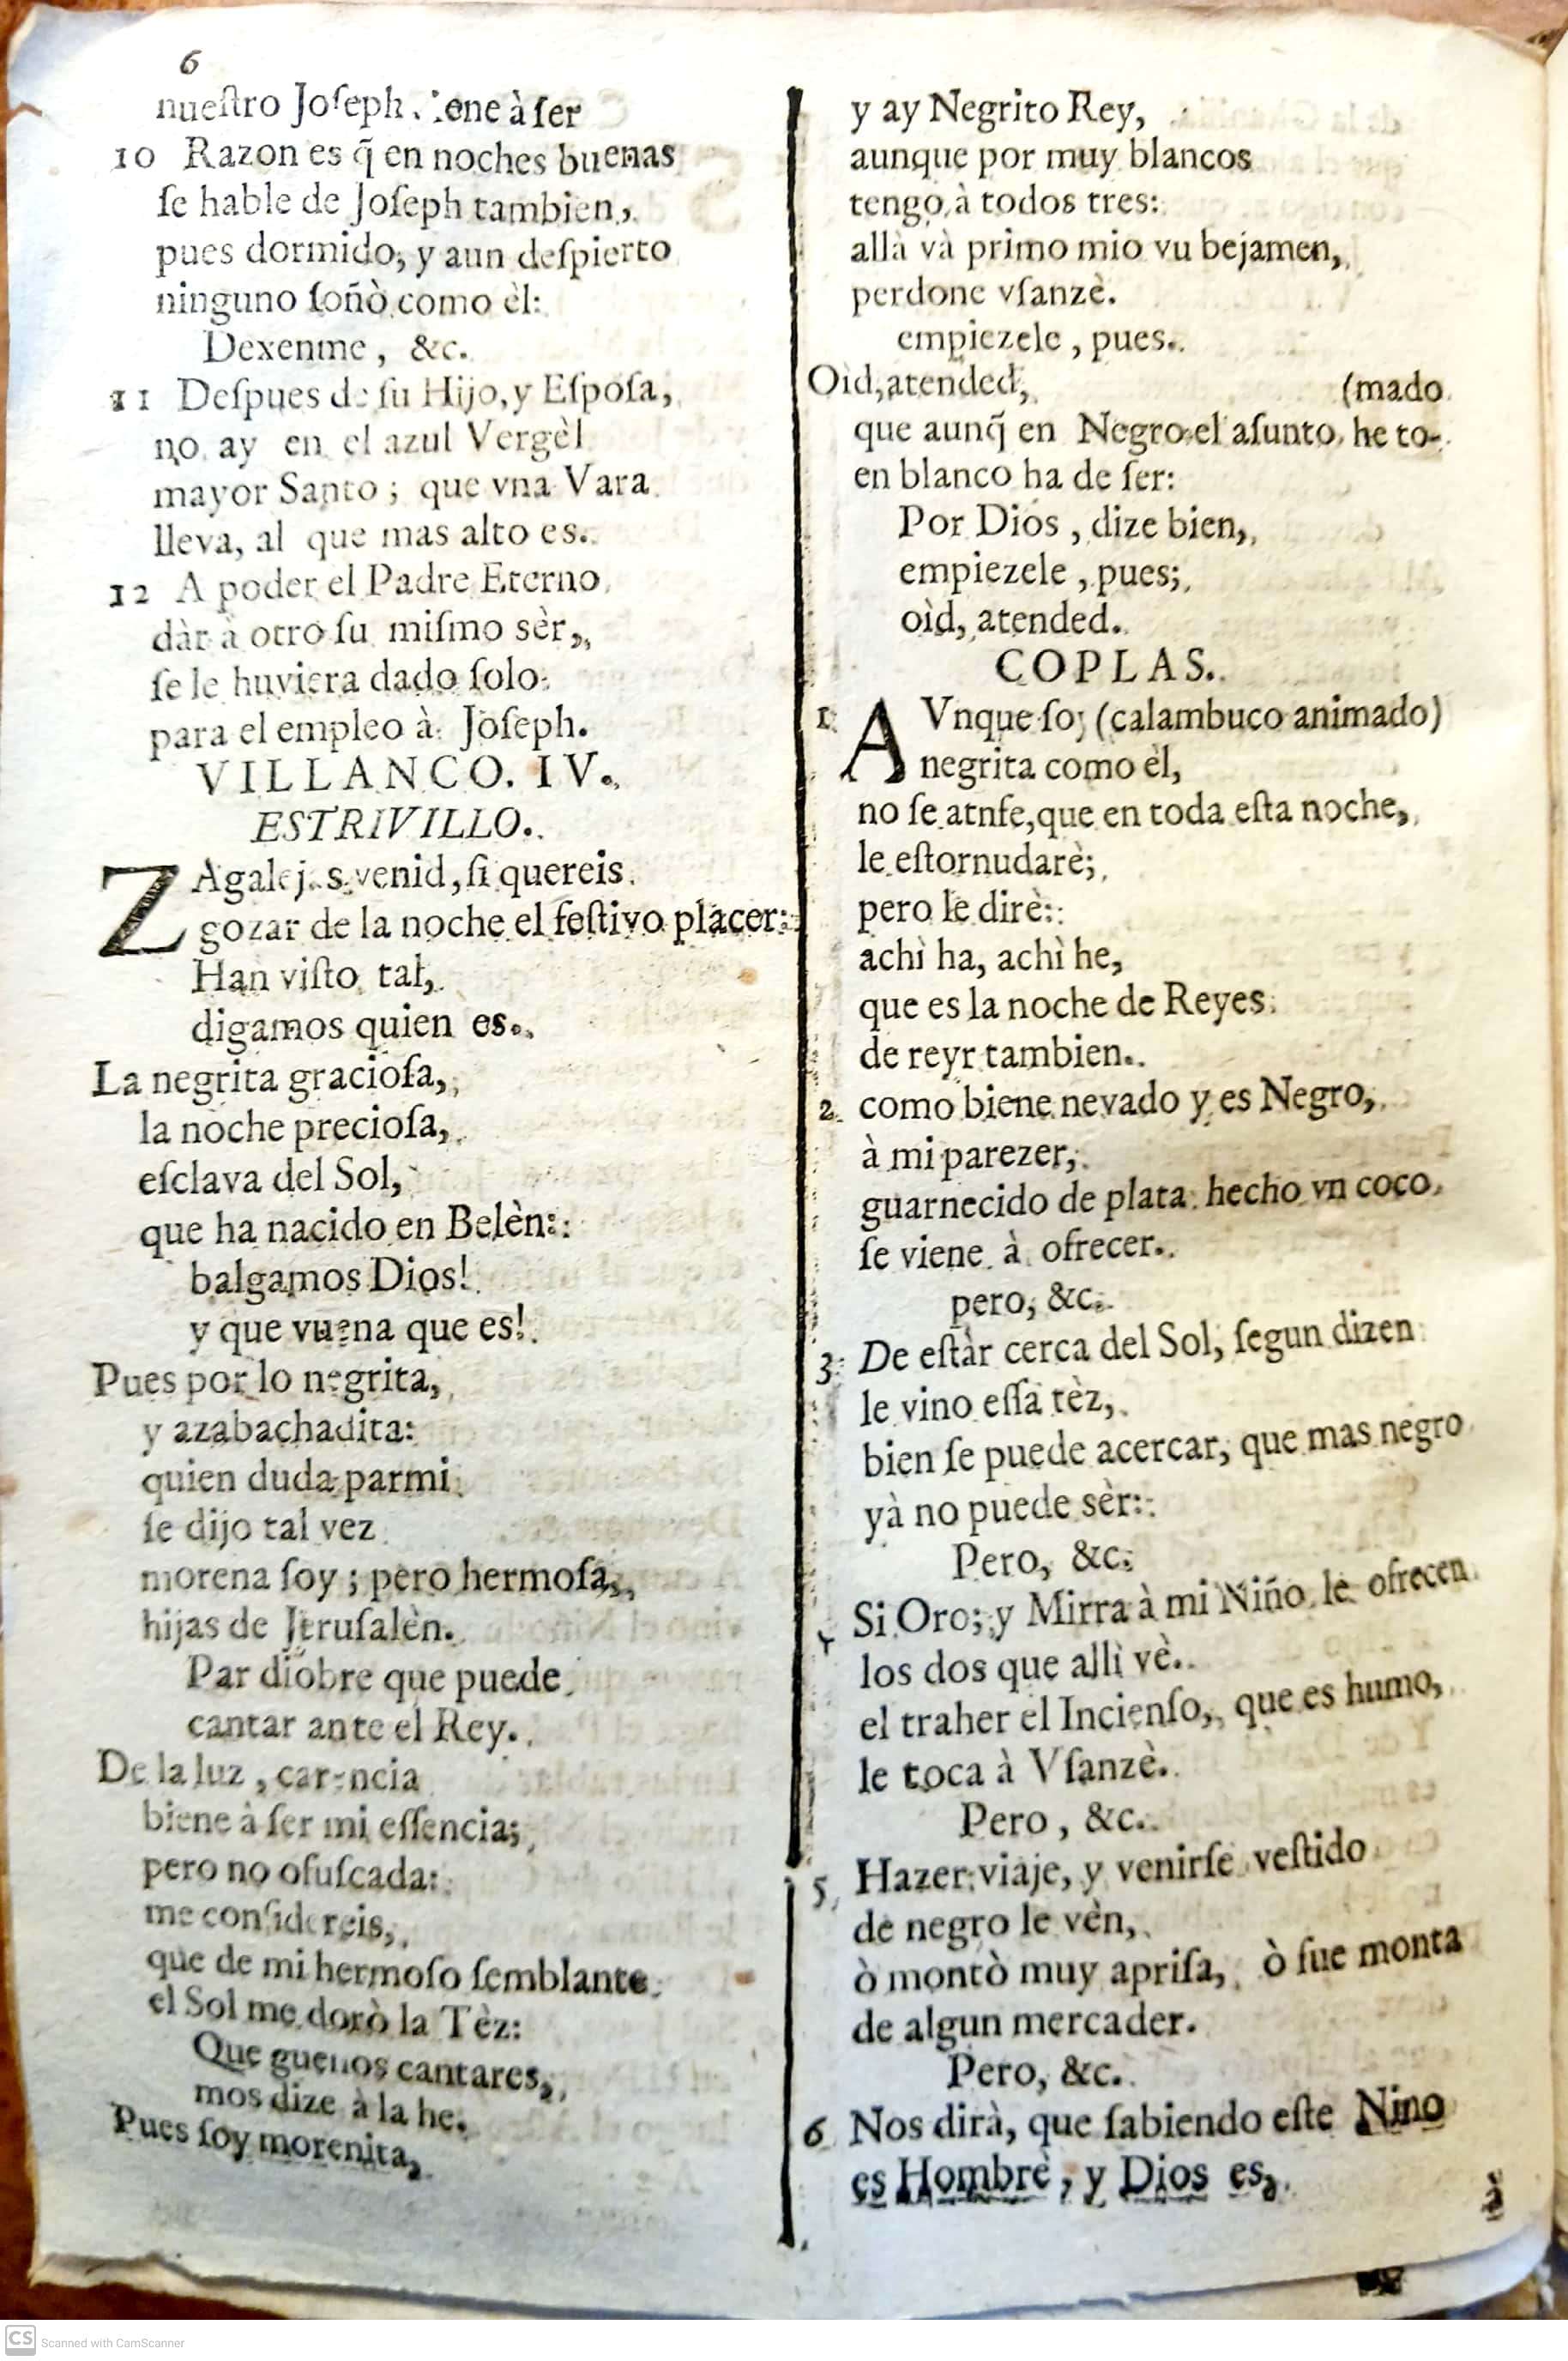 6
nueſtro Joſeph, :ene à ſer
10 Razon es q̃ en noches buenas
ſe hable de Joſeph tambien,
pues dormido, y aun deſpierto
ninguno ſoñò como èl:
Dexenme, &c.
11 Deſpues de ſu Hijo, y Eſpoſa,
no ay en el azul Vergèl
mayor Santo; que vna Vara
lleva, al que mas alto es.
12 A poder el Padre Eterno
dàr à otro ſu miſmo sèr,
ſe le huviera dado ſolo
para el empleo à Joſeph.
VILLANCO. IV.
ESTRIVILLO.
ZAgalej..s venid, ſi quereis
gozar de la noche el feſtivo placer:
Han viſto tal,
digamos quien es.
La negrita gracioſa,
la noche precioſa,
eſclava del Sol,
que ha nacido en Belèn:
balgamos Dios!
y que vuena que es!
Pues por lo negrita,
y azabachadita:
quien duda parmi
ſe dijo tal vez
morena ſoy; pero hermoſa,
hijas de Jeruſalèn.
Par diobre que puede
cantar ante el Rey.
De la luz, carencia
biene à ſer mi eſſencia;
pero no ofuſcada:
me conſidereis,
que de mi hermoſo ſemblante
el Sol me dorò la Tèz:
Que guenos cantares,
mos dize à la he.
Pues ſoy morenita,
y ay Negrito Rey,
aunque por muy blancos
tengo à todos tres:
allà và primo mio vu bejamen,
perdone vſanzè.
empiezele, pues.
Oìd, atended, (mado
que aunq̃ en Negro el aſunto he to-
en blanco ha de ſer:
Por Dios, dize bien,
empiezele, pues;
oìd, atended.
COPLAS.
1 AVnque ſoy (calambuco animado)
negrita como èl,
no ſe atnfe, que en toda eſta noche,
le eſtornudarè;
pero le dirè:
achì ha, achì he,
que es la noche de Reyes
de reyr tambien.
2 como biene nevado y es Negro,
à mi parezer,
guarnecido de plata hecho vn coco
ſe viene à ofrecer.
pero, &c.
3 De eſtàr cerca del Sol, ſegun dizen
le vino eſſa tèz,
bien ſe puede acercar, que mas negro
yà no puede sèr:
Pero, &c.
Si Oro; y Mirra à mi Niño le ofrecen
los dos que alli vè.
el traher el Incienſo, que es humo,
le toca à Vſanzè.
Pero, &c.
5 Hazer viaje, y venirſe veſtido
de negro le vèn,
ò montò muy apriſa, ò fue monta
de algun mercader.
Pero, &c.
6 Nos dirà, que ſabiendo eſte Nino
es Hombre, y Dios es,
à
CS Scanned with CamScanner